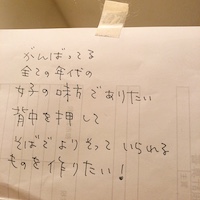 がんばってる
全ての年代の
女子の味方でありたい
背中を押して
そばでよりそって いられる
ものを作りたい！